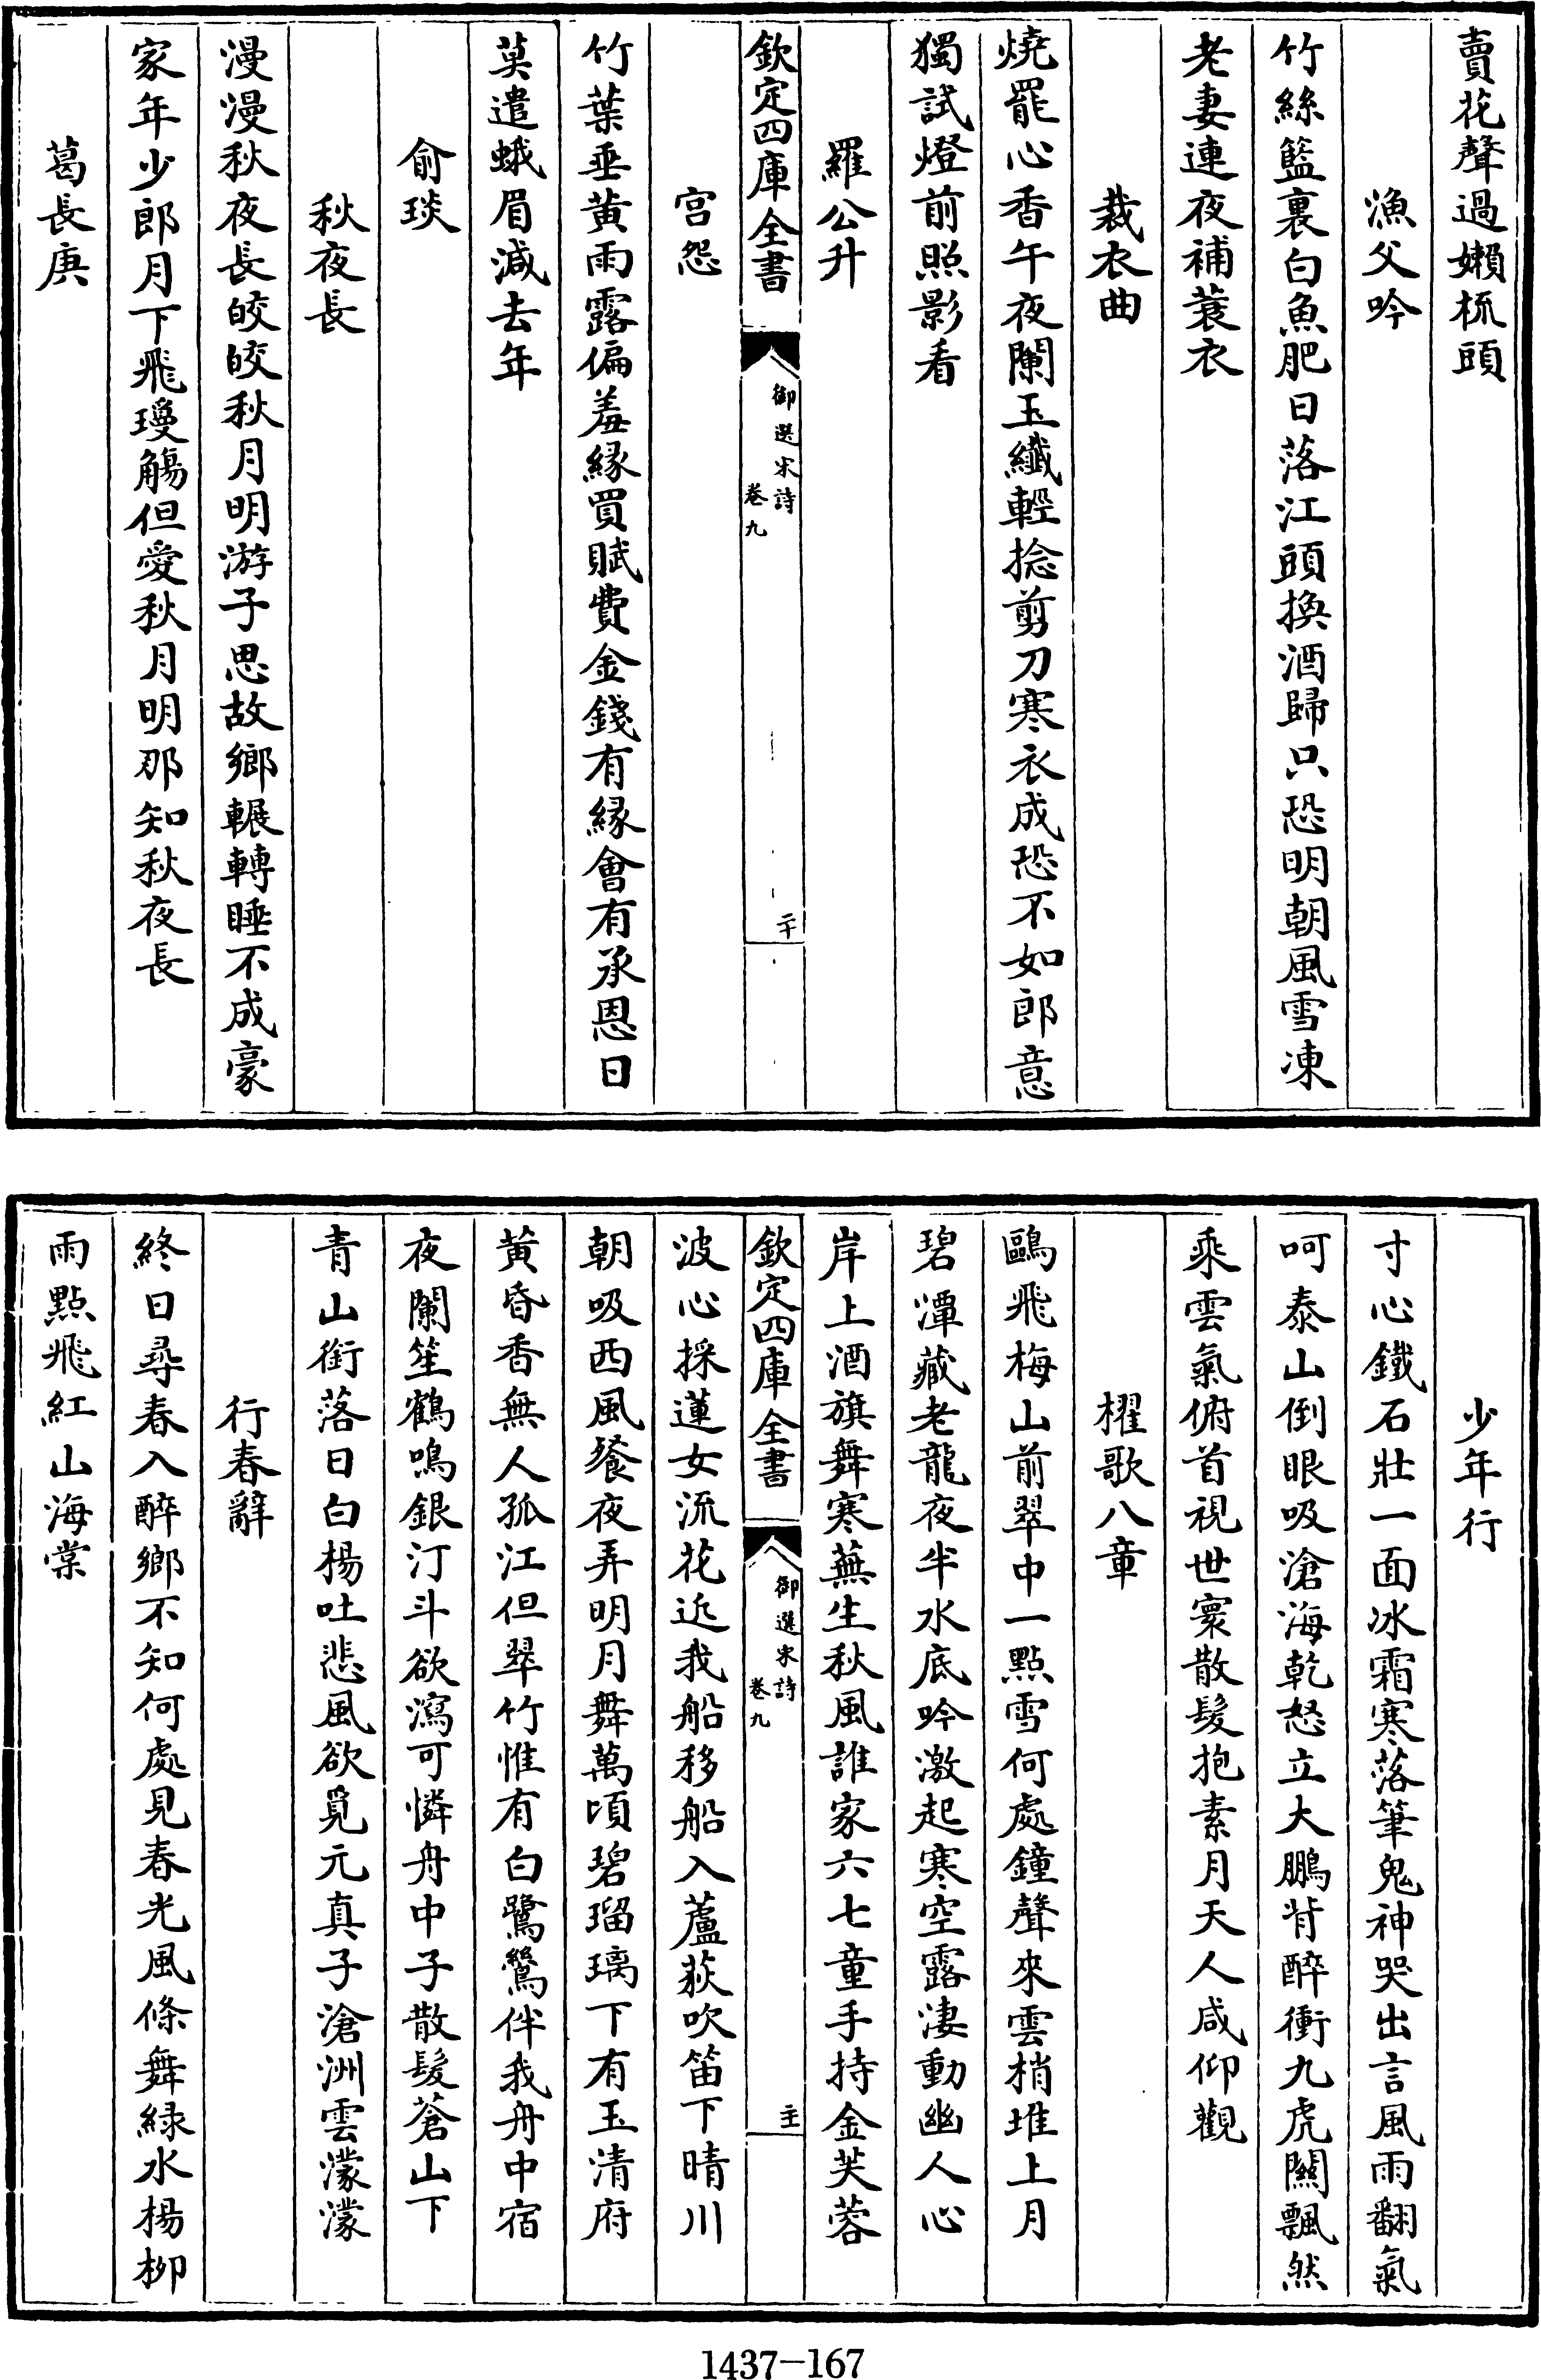 賣花聲過嬾梳頭
漁父吟
竹絲籃裏白魚肥日落江頭換酒歸只恐明朝風雪凍
老妻連夜補蓑衣
裁衣曲
燒罷心香午夜闌玉纖輕捻剪刀寒衣成恐不如郎意
獨試燈前照影看
羅公升
欽定四庫全書
御選宋詩
卷九
二十
宮怨
竹葉垂黃雨露偏羞緣買賦費金錢有緣會有承恩日
莫遣蛾眉減去年
俞琰
秋夜長
漫漫秋夜長皎皎秋月明游子思故鄉輾轉睡不成豪
家年少郎月下飛瓊觴但愛秋月明那知秋夜長
葛長庚
少年行
寸心鐵石壯一面冰霜寒落筆鬼神哭出言風雨翻氣
呵泰山倒眼吸滄海乾怒立大鵬背醉衝九虎關飄然
乘雲氣俯首視世寰散髮抱素月天人咸仰觀
櫂歌八章
鷗飛梅山前翠中一點雪何處鐘聲來雲梢堆上月
碧潭藏老龍夜半水底吟激起寒空露淒動幽人心
岸上酒旗舞寒蕪生秋風誰家六七童手持金芙蓉
欽定四庫全書
御選宋詩
卷九
二十一
波心採蓮女流花近我船移船入蘆荻吹笛下晴川
朝吸西風餐夜弄明月舞萬頃碧瑠璃下有玉清府
黃昏香無人孤江但翠竹惟有白鷺鷥伴我舟中宿
夜闌笙鶴鳴銀汀斗欲瀉可憐舟中子散髮蒼山下
青山銜落日白楊吐悲風欲覓元真子滄洲雲濛濛
行春辭
終日尋春入醉鄉不知何處見春光風條舞綠水楊柳
雨點飛紅山海棠
1437-167